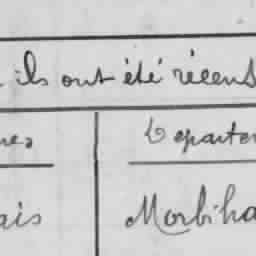 ils ont été récens
nes Departem
ais Morbiha